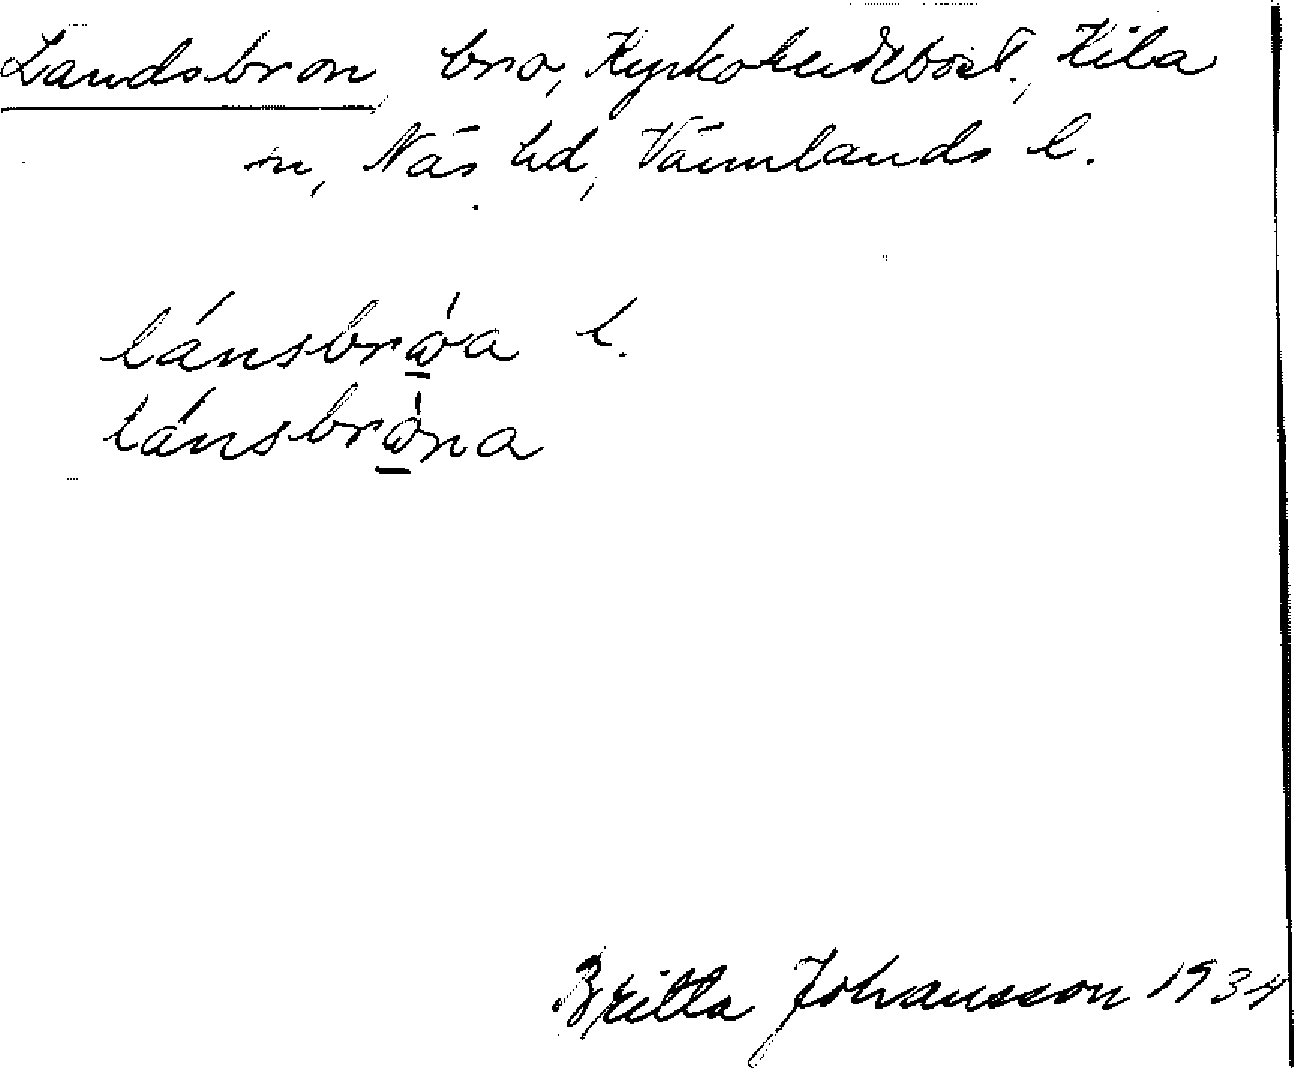 Landsbron bro, Kyrkoherdebost., Kila
sn, Näs hd, Värmlands l.
lánsbrώ̲a l.
lánsbrὼ̲na
Britta Johansson 1934